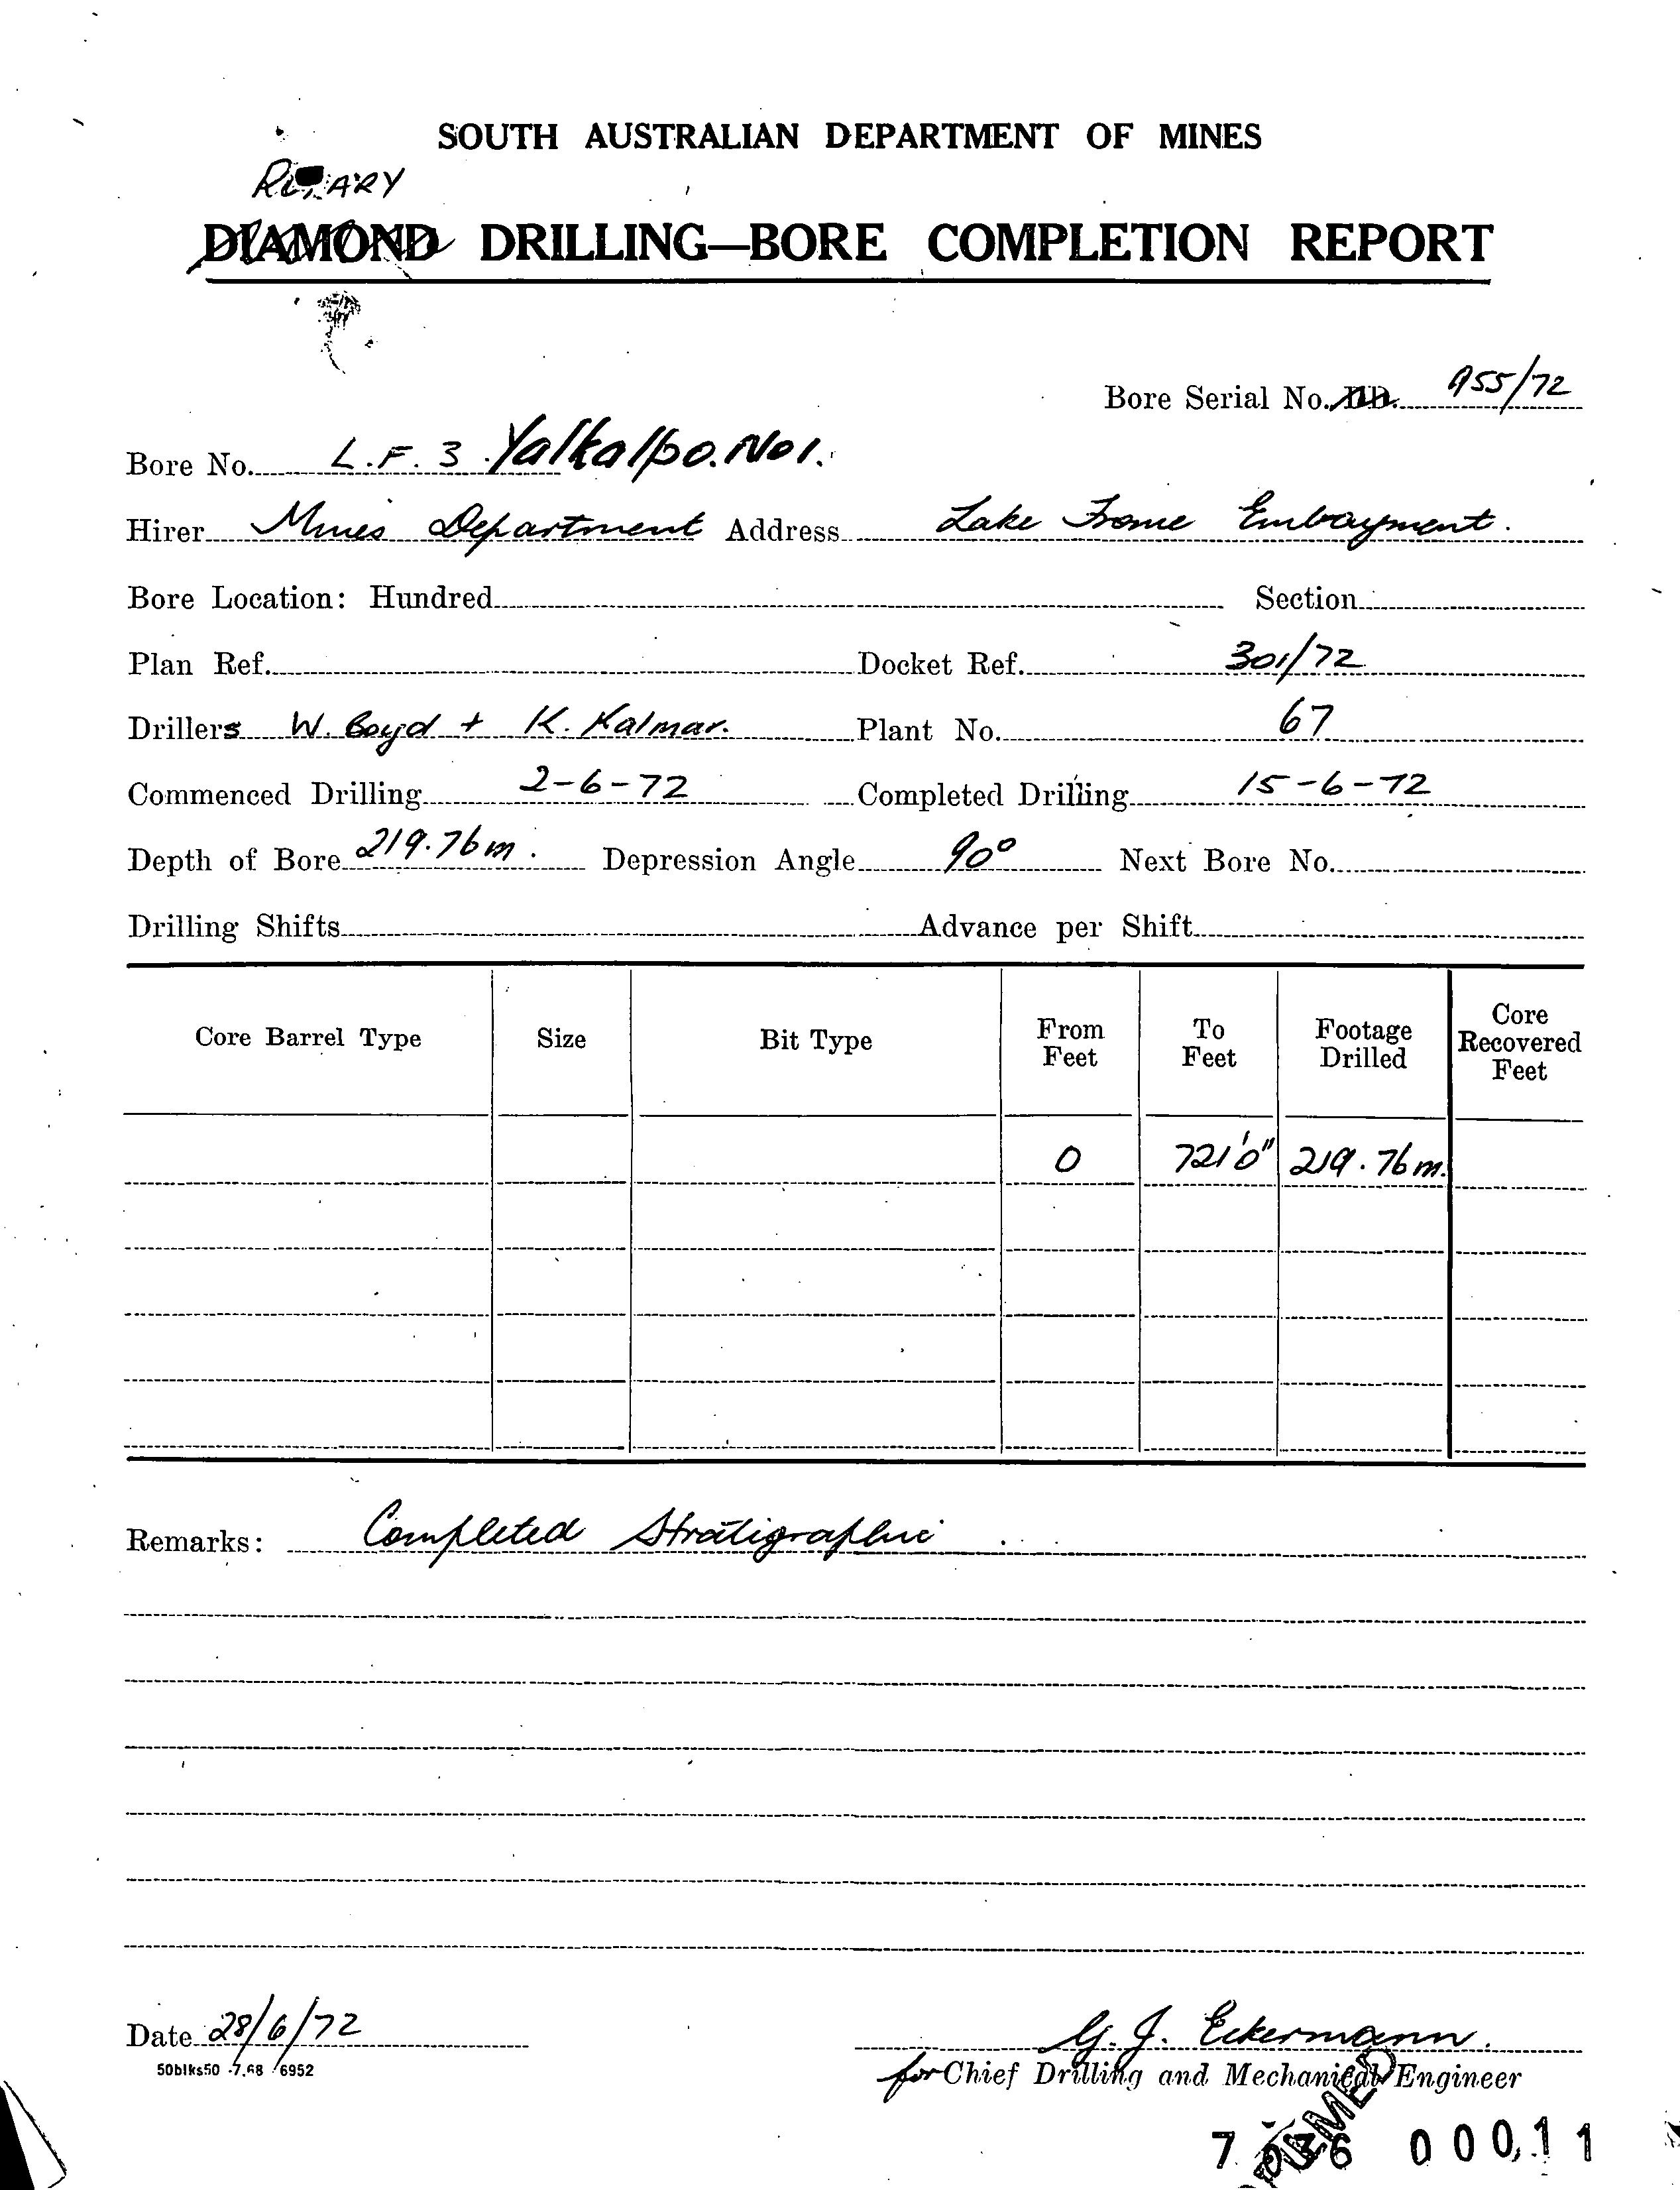 SOUTH AUSTRALIAN DEPARTMENT OF MINES
ROTARY
DIAMOND DRILLING—BORE COMPLETION REPORT
Bore Serial No. DD. 955/72
Bore No. L.F. 3 Yalkalpo. No 1.
Hirer Mines Department Address Lake Frome Embayment.
Bore Location: Hundred Section
Plan Ref. Docket Ref. 301/72
Drillers W. Boyd + K. Kalmar. Plant No. 67
Commenced Drilling 2-6-72 Completed Drilling 15-6-72
Depth of Bore 219.76m. Depression Angle 90° Next Bore No.
Drilling Shifts Advance per Shift
Core Barrel Type Size Bit Type From Feet To Feet Footage Drilled Core Recovered Feet
0 721'0" 219.76m.
Remarks: Completed Stratigraphic
Date 28/6/72 G. J. Eckermann.
50blks50 -7.68 6952 for Chief Drilling and Mechanical Engineer
00011